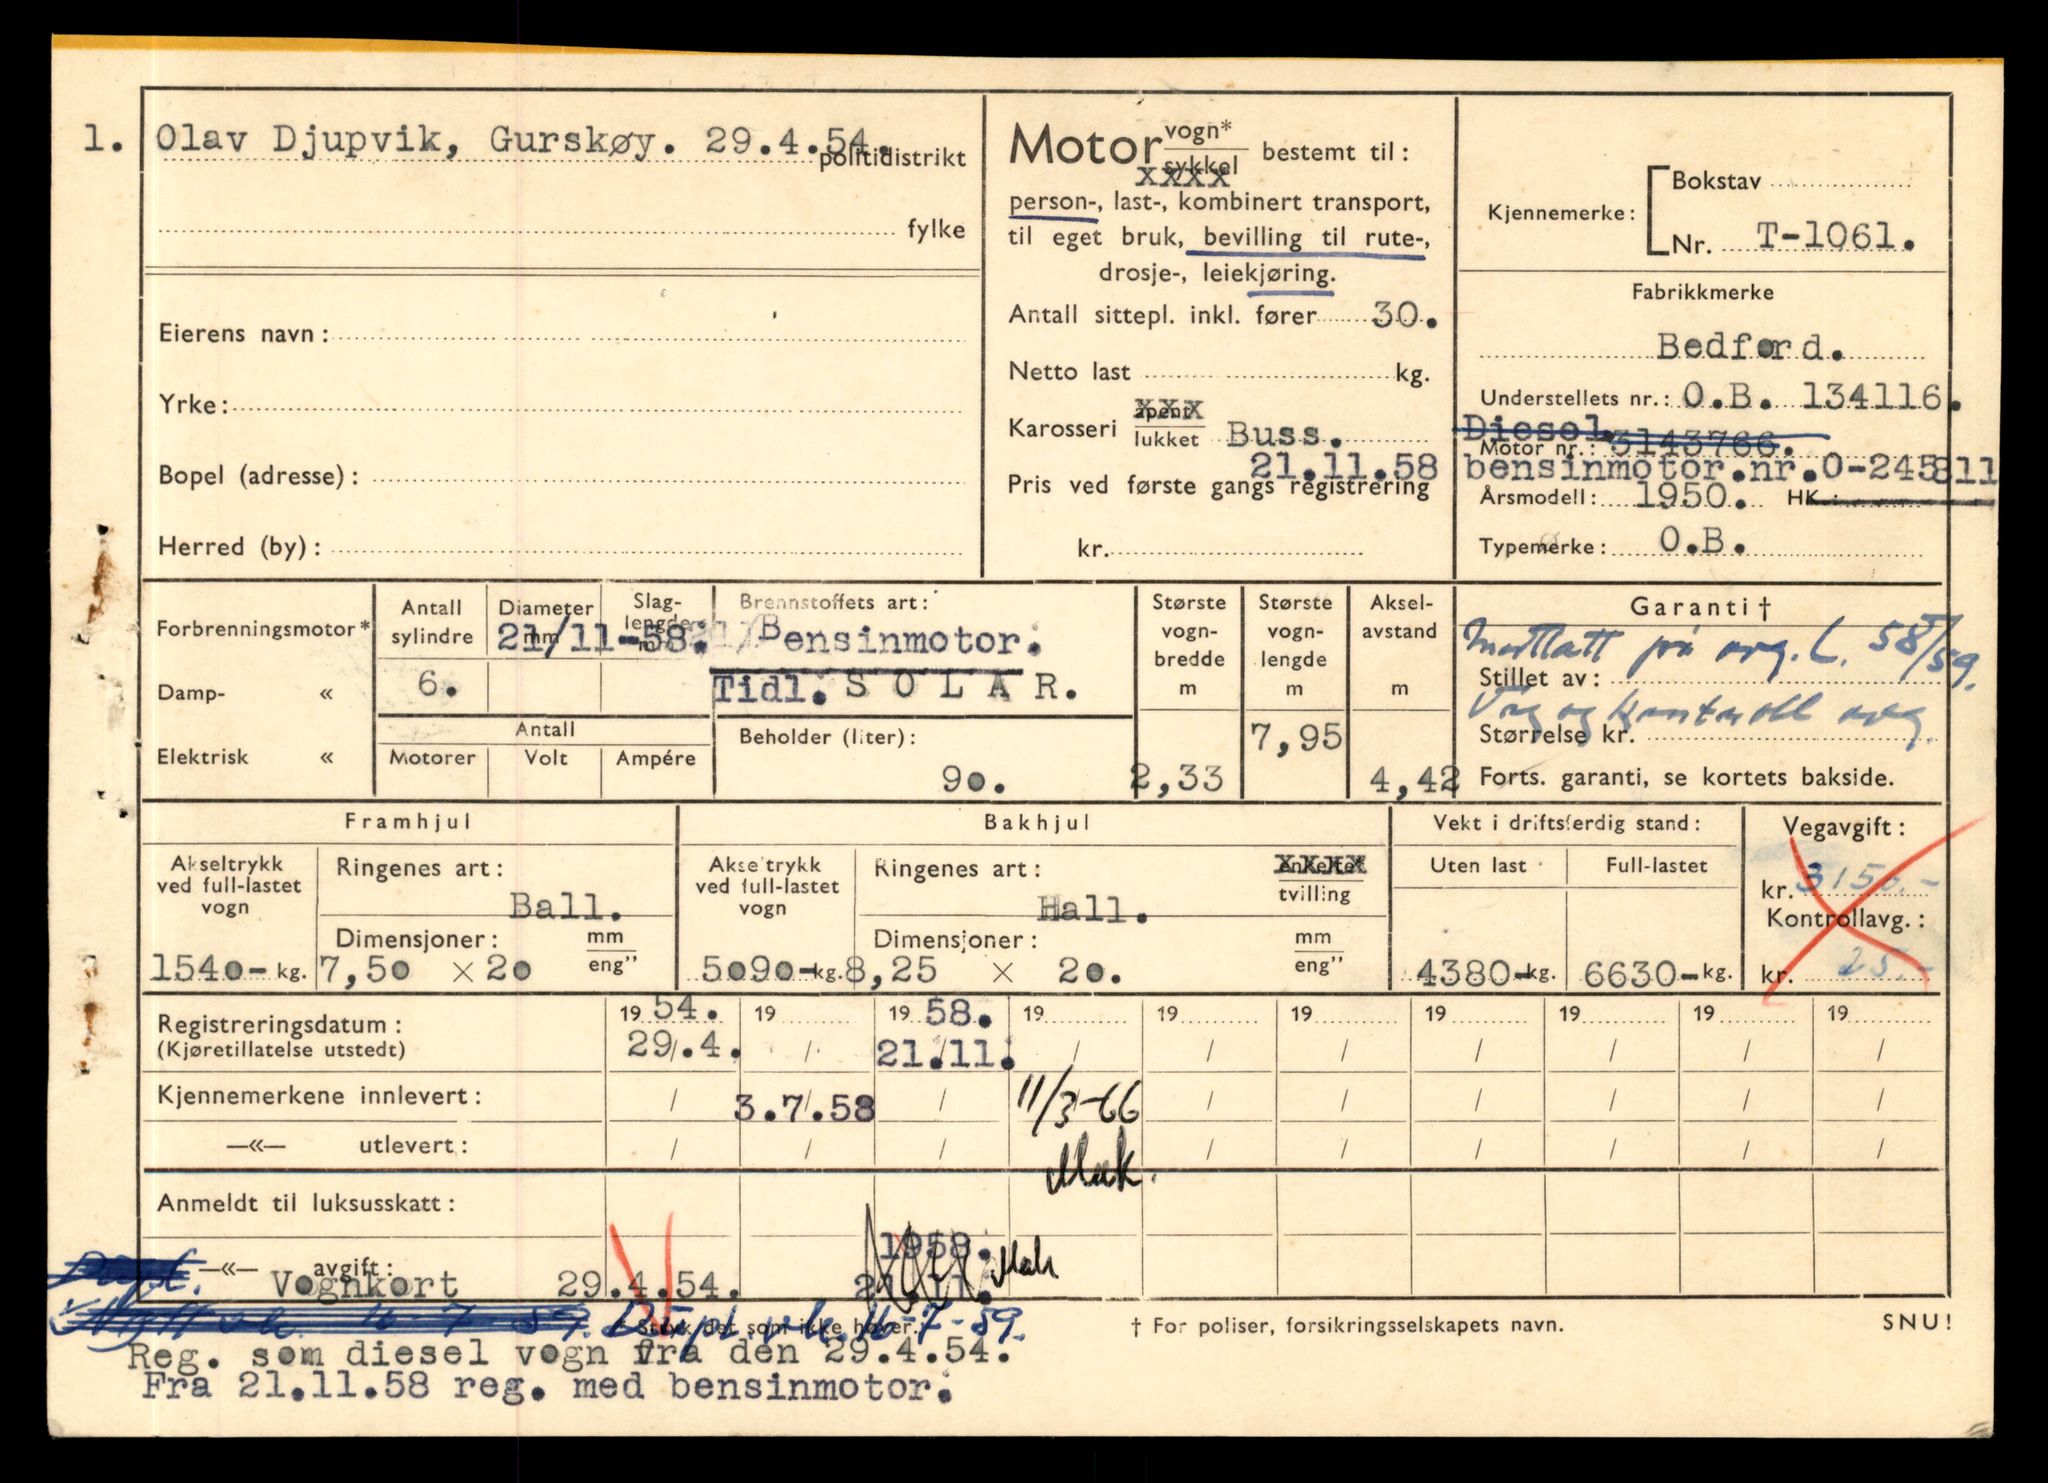 1. Olav Djupvik, Gurskøy. 29.4.54.
politidistrikt
fylke
Eierens navn:
Yrke:
Bopel (adresse):
Herred (by):
Motor vogn* / sykkel bestemt til:
xxxx
person-, last-, kombinert transport,
til eget bruk, bevilling til rute-,
drosje-, leiekjøring.
Antall sittepl. inkl. fører 30.
Netto last kg.
xxx
Karosseri åpent / lukket Buss.
21.11.58
Pris ved første gangs registrering
kr.
Kjennemerke: Bokstav
Nr. T-1061.
Fabrikkmerke
Bedford.
Understellets nr.: O.B. 134116.
Diesel.
Motor nr.: 3143766.
bensinmotor.nr.O-245811
Årsmodell: 1950. HK.:
Typemerke: O.B.
Forbrenningsmotor*
Damp- «
Elektrisk «
Antall sylindre
6.
Diameter mm
Slaglengde
21/11-58.
Antall
Motorer Volt Ampére
Brennstoffets art:
Bensinmotor.
Tidl. S O L A R.
Beholder (liter):
90.
Største vogn-bredde m
2,33
Største vogn-lengde m
7,95
Aksel-avstand m
4,42
Garanti †
på avg. L. 58/59.
Stillet av:
og kontroll avg.
Størrelse kr.
Forts. garanti, se kortets bakside.
Framhjul
Akseltrykk ved full-lastet vogn
1540- kg.
Ringenes art:
Ball.
Dimensjoner: mm / eng"
7,50 x 20
Bakhjul
Akseltrykk ved full-lastet vogn
5090-kg.
Ringenes art: enkeltet / tvilling
xxxx
Hall.
Dimensjoner: mm / eng"
8,25 x 20.
Vekt i driftsferdig stand:
Uten last Full-lastet
4380-kg. 6630-kg.
Vegavgift:
kr. 3150.-
Kontrollavg.:
kr. 25.-
Registreringsdatum: 19 54. 19 19 58. 19 19 19 19 19 19 19
(Kjøretillatelse utstedt) 29.4. / 21.11. / / / / / / /
Kjennemerkene innlevert: / 3.7.58 / 11/3-66 / / / / / /
—«— utlevert: / / / / / / / / /
Mak.
Anmeldt til luksusskatt:
1958.
—«— avgift:
Vognkort 29.4.54. 21.11. Mak
16-7-59. Dupl. vk. 16-7-59.
* Stryk det som ikke høver.
† For poliser, forsikringsselskapets navn.
SNU!
Reg. som diesel vogn fra den 29.4.54.
Fra 21.11.58 reg. med bensinmotor.